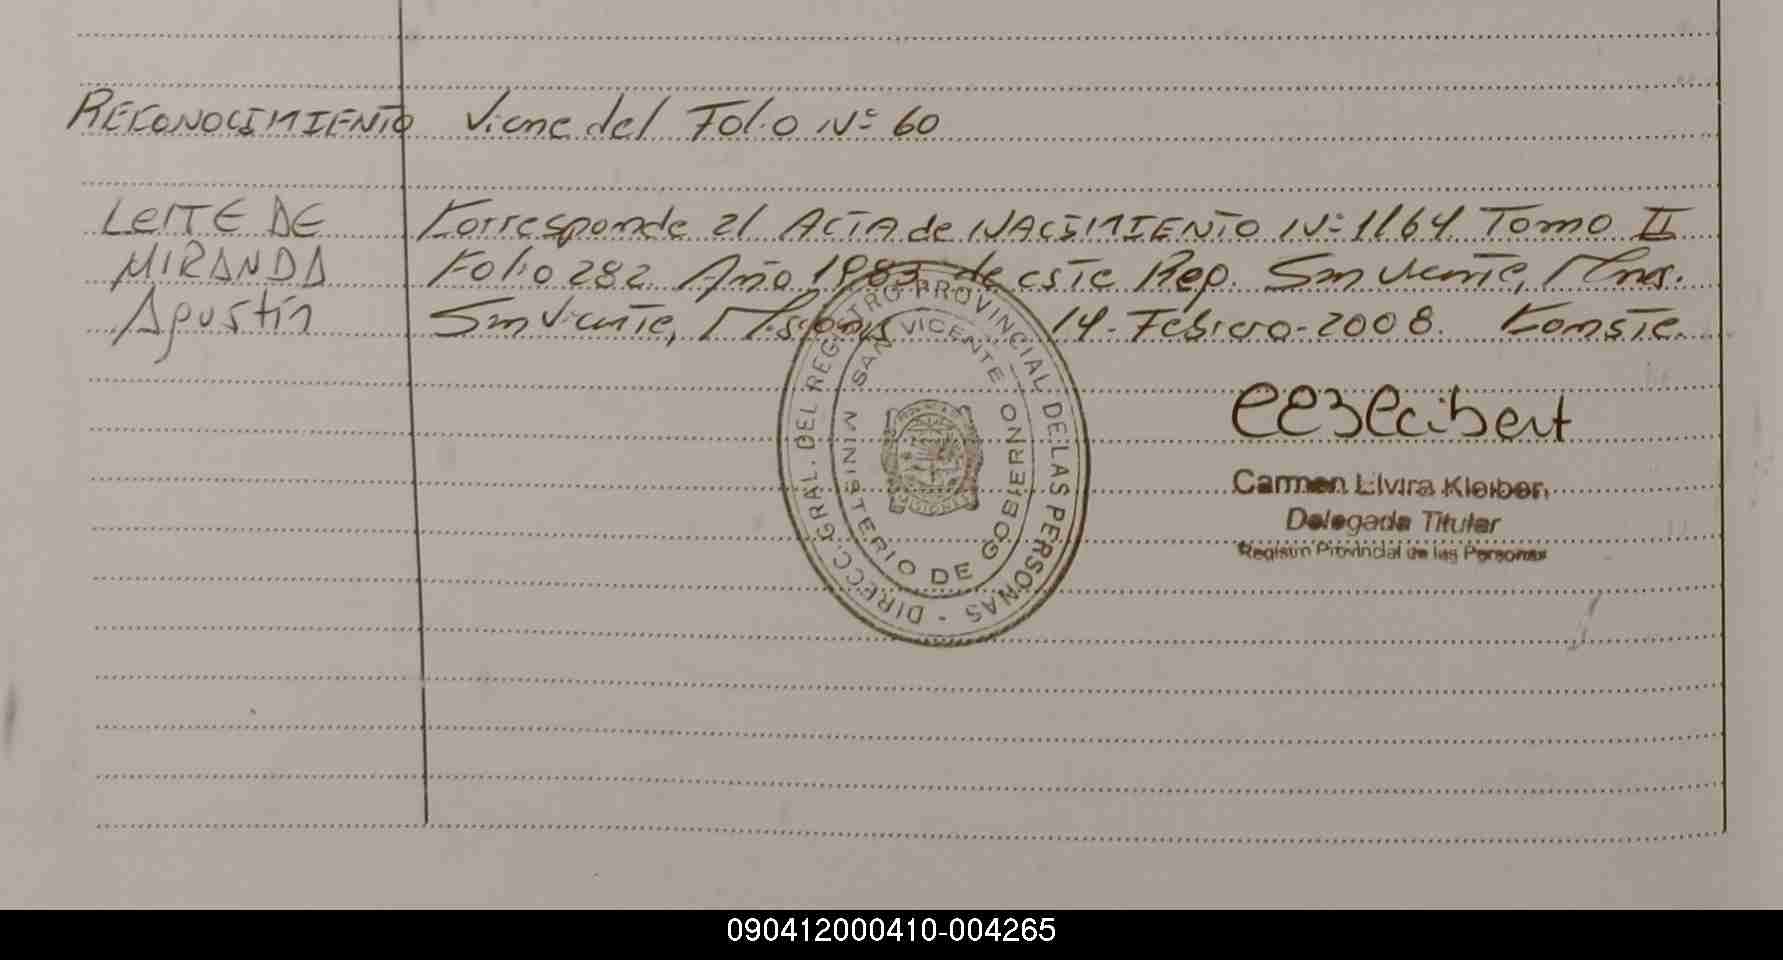 RECONOCIMIENTO Viene del Folio Nº 60
LEITE DE Corresponde al ACTA de NACIMIENTO Nº 1164 Tomo II
MIRANDA Folio 282 Año 1983 de este Rep. San Vicente, Mnes.
Agustín San Vicente, Misiones 14-Febrero-2008. Conste.
DIRECC. GRAL. DEL REGISTRO PROVINCIAL DE LAS PERSONAS -
SAN VICENTE
MINISTERIO DE GOBIERNO
MISIONES
Carmen Elvira Kleiber
Delegada Titular
Registro Provincial de las Personas
090412000410-004265